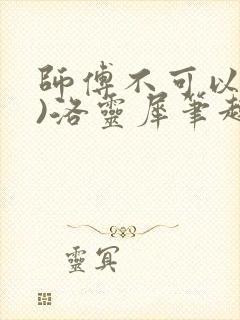 師傅不可以
)洛靈犀筆趣
靈冥